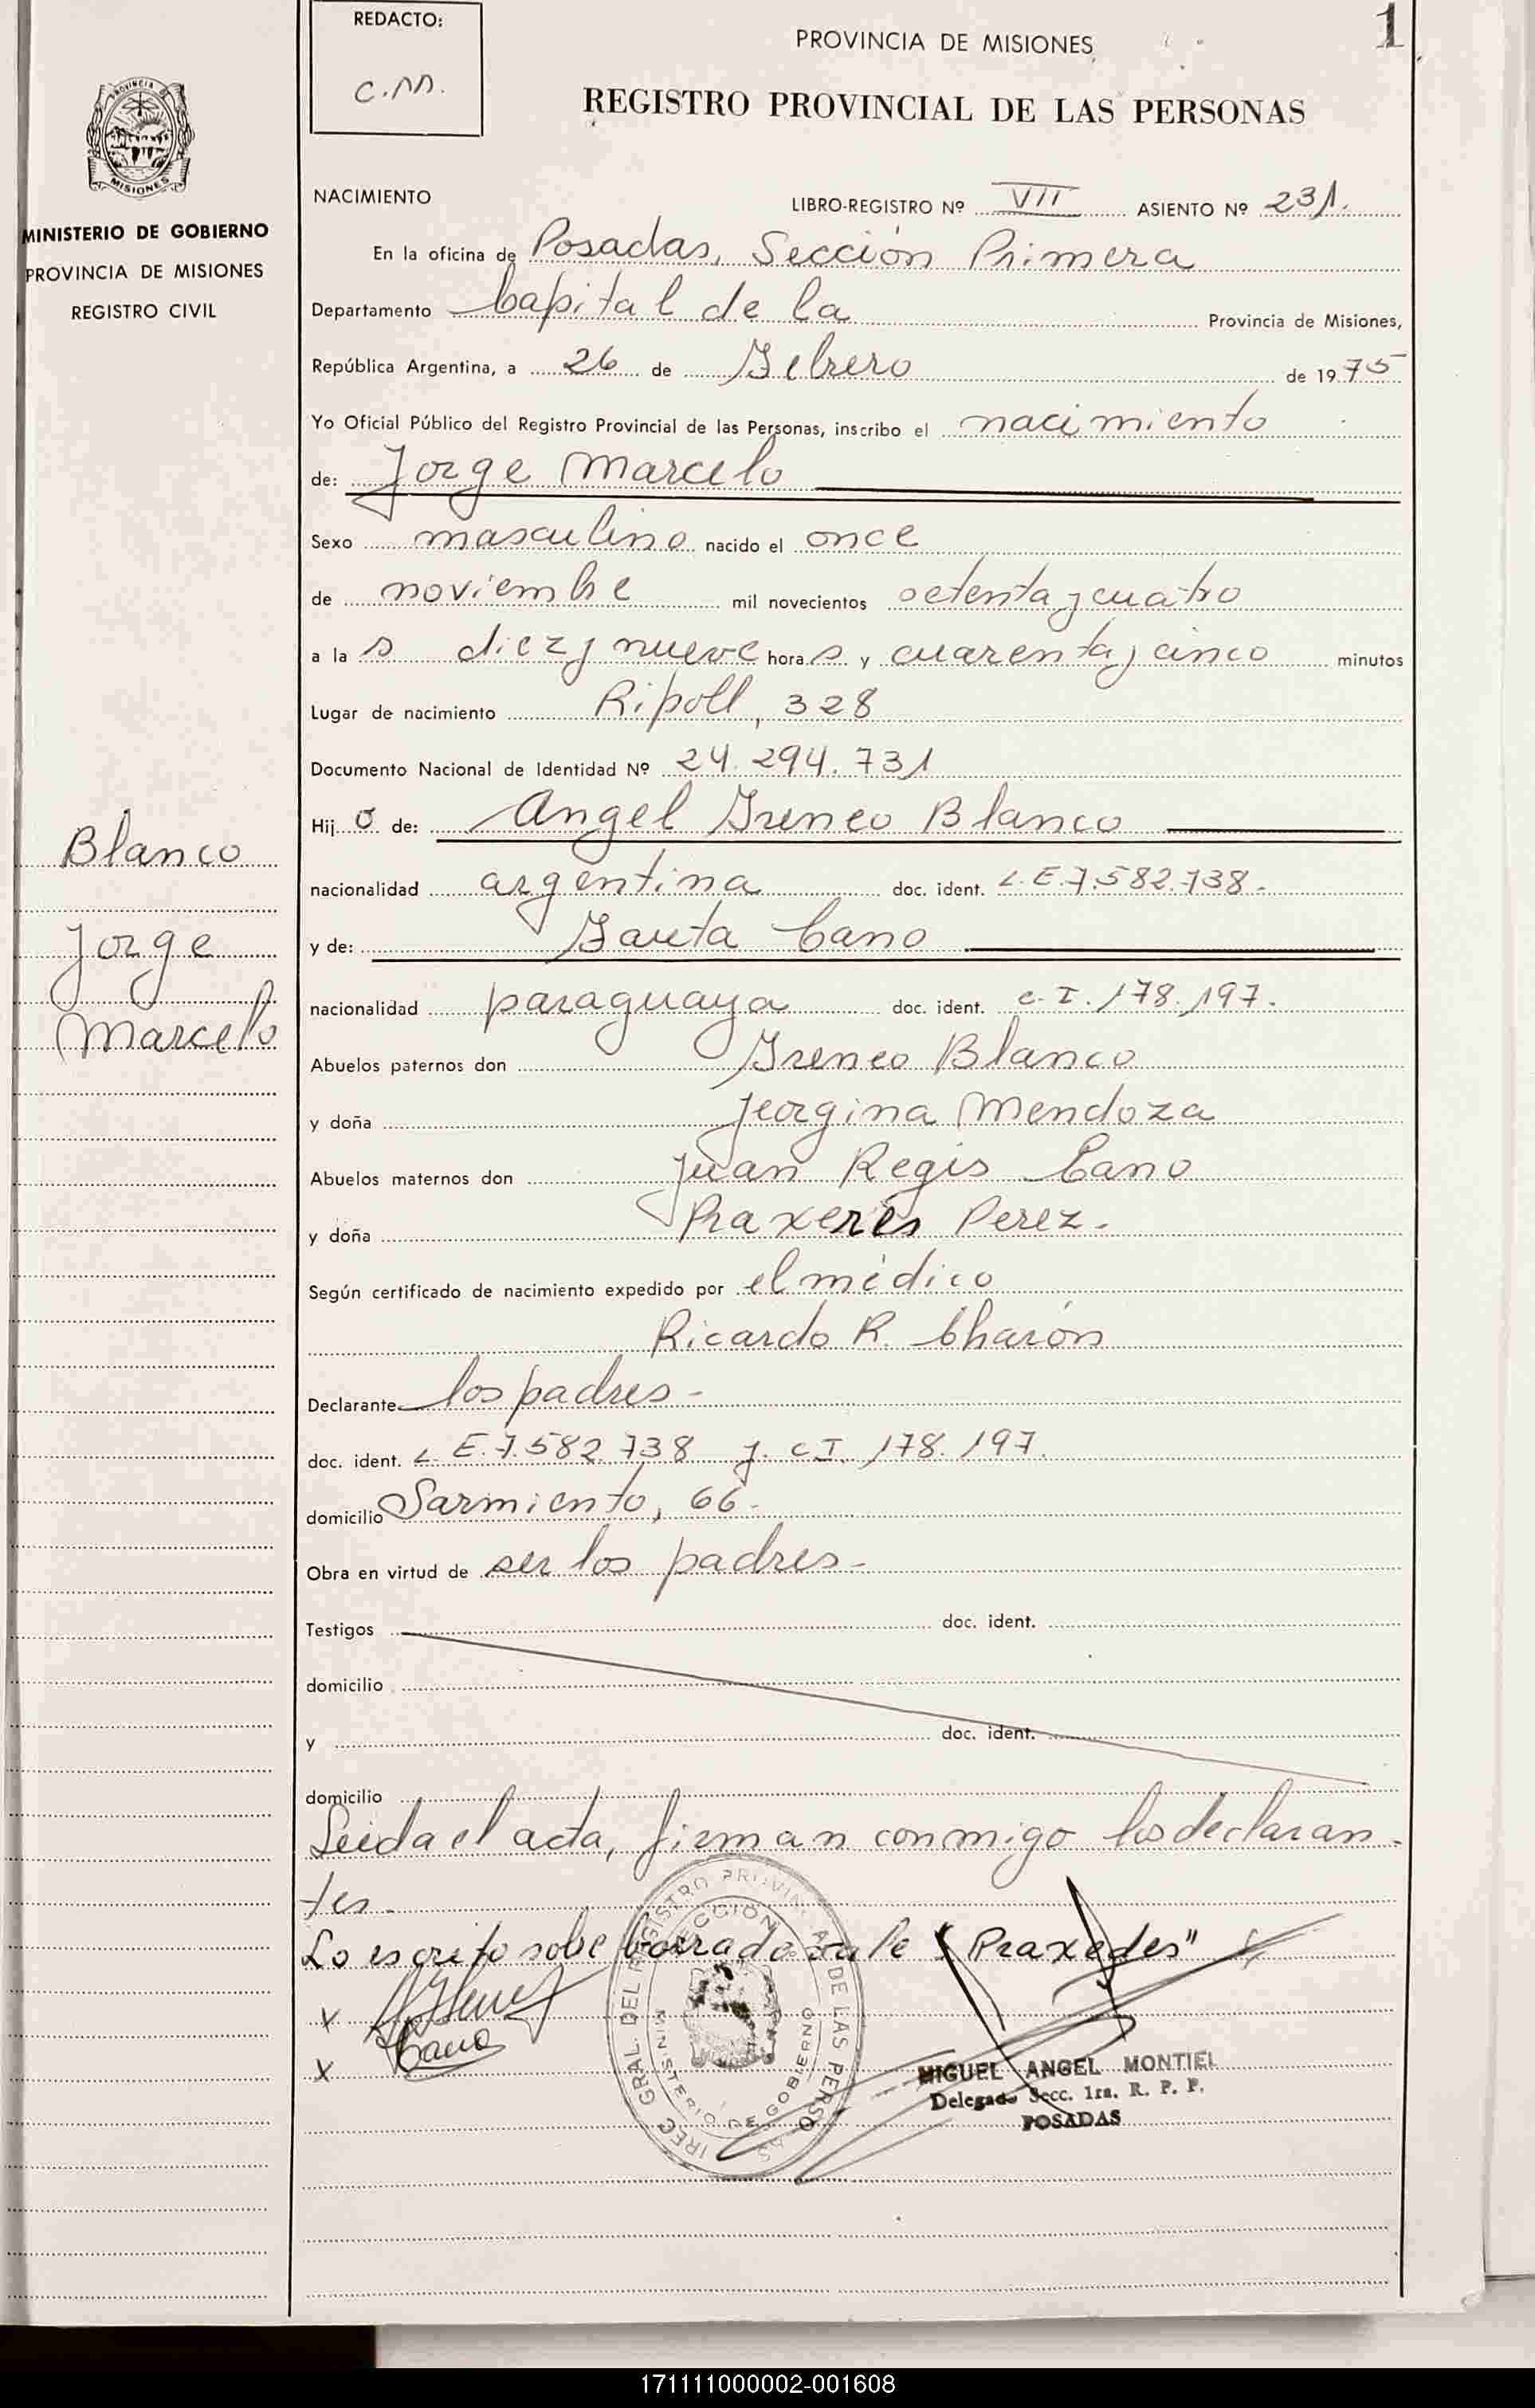 REDACTO:
C.M.
PROVINCIA DE MISIONES
1
REGISTRO PROVINCIAL DE LAS PERSONAS
PROVINCIA DE
MISIONES
MINISTERIO DE GOBIERNO
PROVINCIA DE MISIONES
REGISTRO CIVIL
NACIMIENTO
LIBRO-REGISTRO Nº VII ASIENTO Nº 231.
En la oficina de Posadas, Sección Primera
Departamento Capital de la Provincia de Misiones,
República Argentina, a 26 de Febrero de 1975
Yo Oficial Público del Registro Provincial de las Personas, inscribo el nacimiento
de: Jorge Marcelo
Sexo masculino nacido el once
de noviembre mil novecientos setenta y cuatro
a las diez y nueve horas y cuarenta y cinco minutos
Lugar de nacimiento Ripoll, 328
Documento Nacional de Identidad Nº 24.294.731
Hijo de: Angel Ireneo Blanco
nacionalidad argentina doc. ident. L.E.7.582.738.-
y de: Fausta Cano
nacionalidad paraguaya doc. ident. C.I. 178.197.
Abuelos paternos don Ireneo Blanco
y doña Jeorgina Mendoza
Abuelos maternos don Juan Regis Cano
y doña Praxeres Perez.-
Según certificado de nacimiento expedido por el médico
Ricardo R. Charón
Declarante los padres-
doc. ident. L.E.7.582.738 y C.I. 178.197.
domicilio Sarmiento, 66.-
Obra en virtud de ser los padres-
Testigos doc. ident.
domicilio
y doc. ident.
domicilio
Leída el acta, firman conmigo los declaran-
tes.-
Lo escrito sobre borrado vale "Praxedes"
x
x Cano
Blanco
Jorge
Marcelo
DIREC. GRAL. DEL REGISTRO PROVINCIAL DE LAS PERSONAS
SECCION
MINISTERIO DE GOBIERNO
MIGUEL ANGEL MONTIEL
Delegado Secc. 1ra. R. P. P.
POSADAS
171111000002-001608